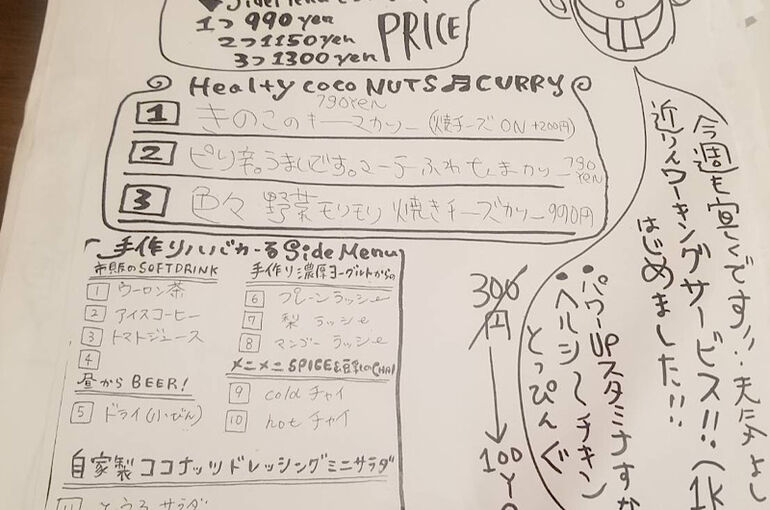 Side Menu
1つ 990 yen
2つ 1150 yen
3つ 1300 yen
PRICE
Healty coco NUTS♬CURRY
790yen
1 きのこのキーマカリー (焼チーズON +200円)
2 ピリ辛。うましです。マーボーふわもしまカリー 790 yen
3 色々野菜モリモリ焼きチーズカリー 990円
手作りハバかーるSide Menu
市販のSOFT DRINK
1 ウーロン茶
2 アイスコーヒー
3 トマトジュース
4
昼からBEER!
5 ドライ(小びん)
手作り濃厚ヨーグルトからの
6 プレーンラッシe
7 梨ラッシe
8 マンゴーラッシe
メニメニSPICE&豆乳のCHAI
9 coldチャイ
10 hotチャイ
自家製ココナッツドレッシングミニサラダ
11 とうふサラダ
300円
100
今週も宜しくです!!
近りんワーキングサービス!! (1K
はじめました!!
•パワーUPスタミナすな
•ヘルシ〜チキン
とっぴんぐ